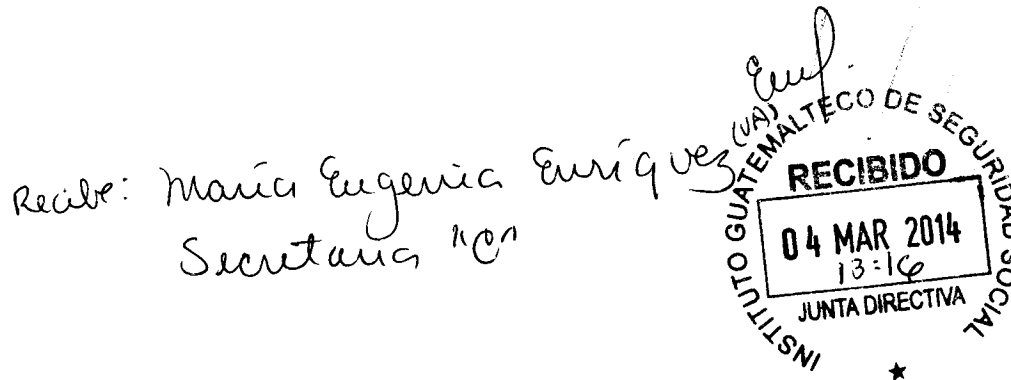 Recibe: María Eugenia Enríquez (UA)
Secretaria "C"
INSTITUTO GUATEMALTECO DE SEGURIDAD SOCIAL
RECIBIDO
04 MAR 2014
13:16
JUNTA DIRECTIVA